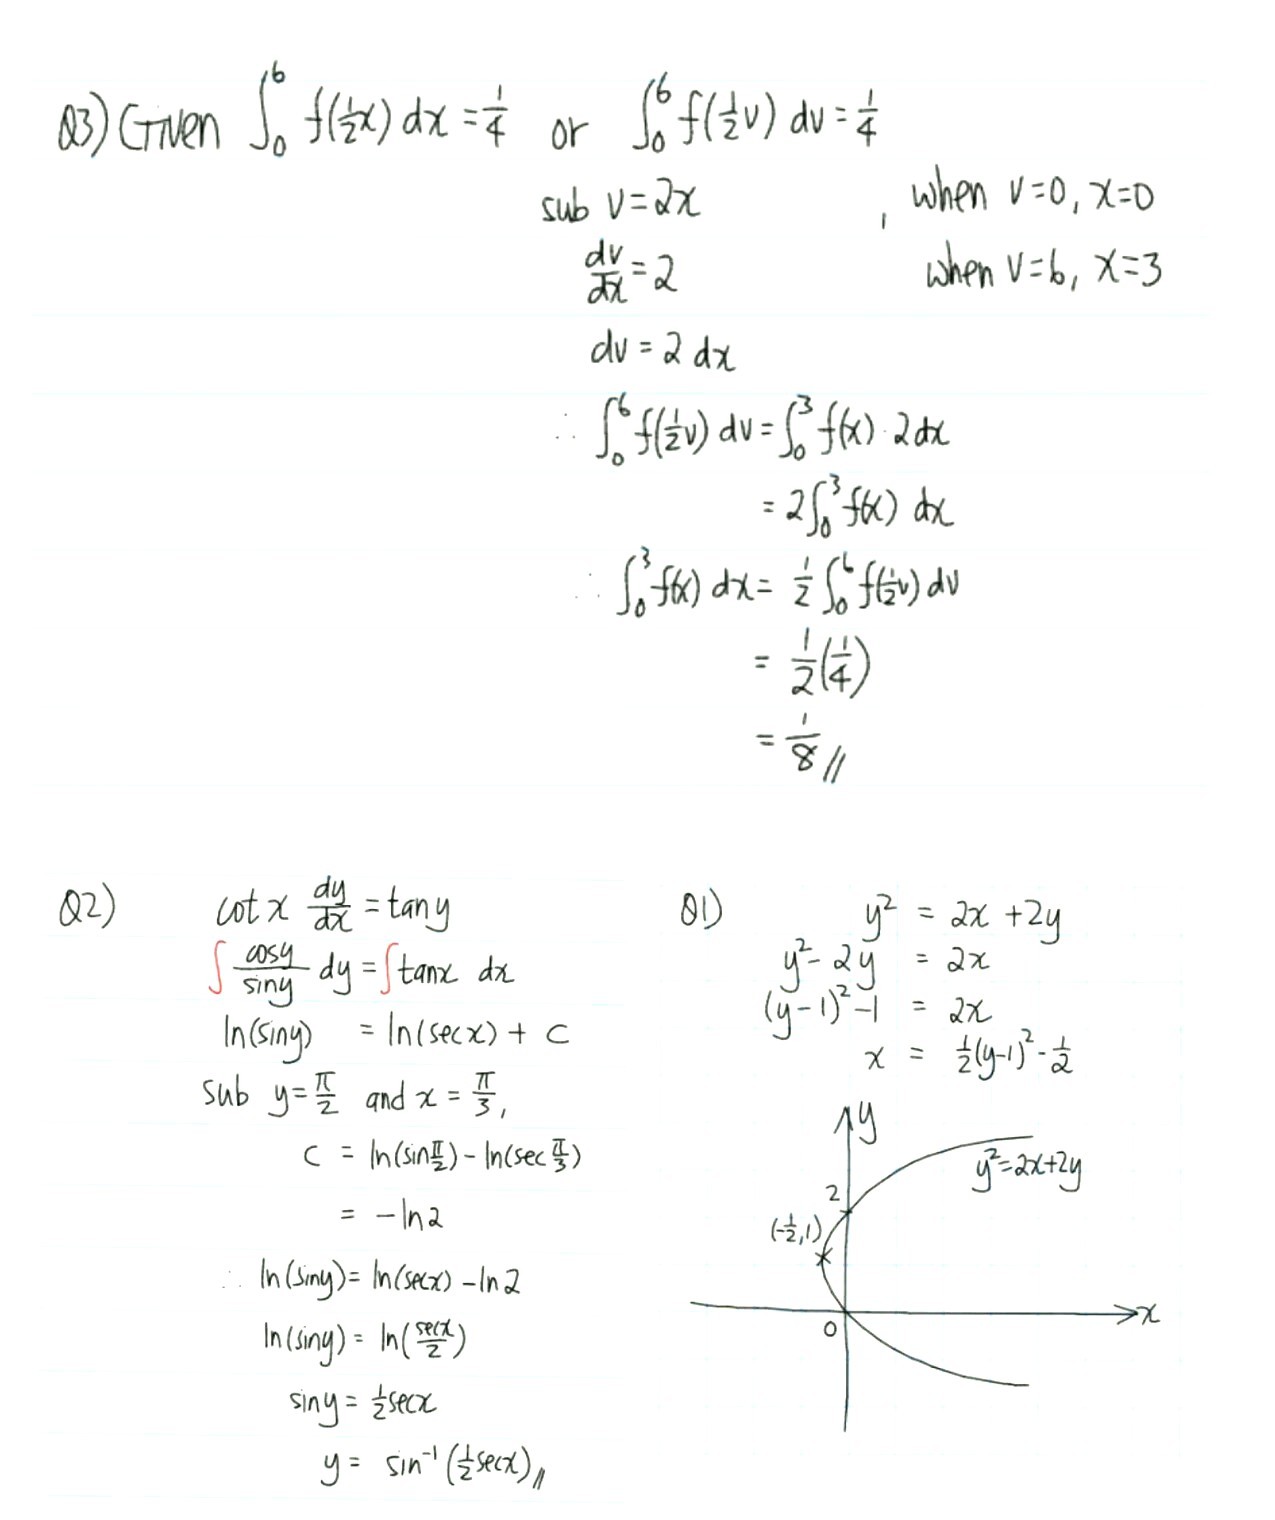 Q3) Given ∫₀⁶ f(½x) dx = 1/4 or ∫₀⁶ f(½v) dv = 1/4
sub v = 2x , when v=0, x=0
dv/dx = 2 when v=6, x=3
dv = 2 dx
∴ ∫₀⁶ f(½v) dv = ∫₀³ f(x) · 2dx
= 2∫₀³ f(x) dx
∴ ∫₀³ f(x) dx = ½ ∫₀⁶ f(½v) dv
= ½(¼)
= 1/8 //
Q2) cot x dy/dx = tan y
∫ cosy/siny dy = ∫ tanx dx
ln(siny) = ln(secx) + C
sub y = π/2 and x = π/3,
C = ln(sin π/2) - ln(sec π/3)
= -ln2
∴ ln(siny) = ln(secx) - ln2
ln(siny) = ln(secx/2)
siny = ½secx
y = sin⁻¹(½secx) //
Q1) y² = 2x + 2y
y² - 2y = 2x
(y-1)² - 1 = 2x
x = ½(y-1)² - ½
y
y²=2x+2y
2
(-½,1)
x
0